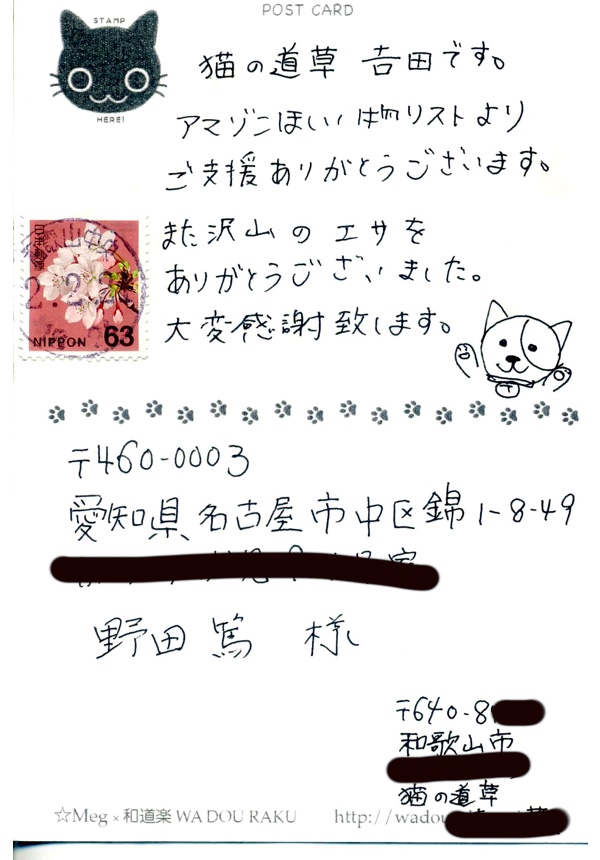 POST CARD
STAMP
HERE!
猫の道草 吉田です。
アマゾンほしい物リストより
ご支援ありがとうございます。
また沢山のエサを
ありがとうございました。
大変感謝致します。
日本郵便
NIPPON 63
〒460-0003
愛知県名古屋市中区錦1-8-49
野田篤 様
〒640-8
和歌山市
猫の道草
☆Meg×和道楽 WA DOU RAKU http://wadou